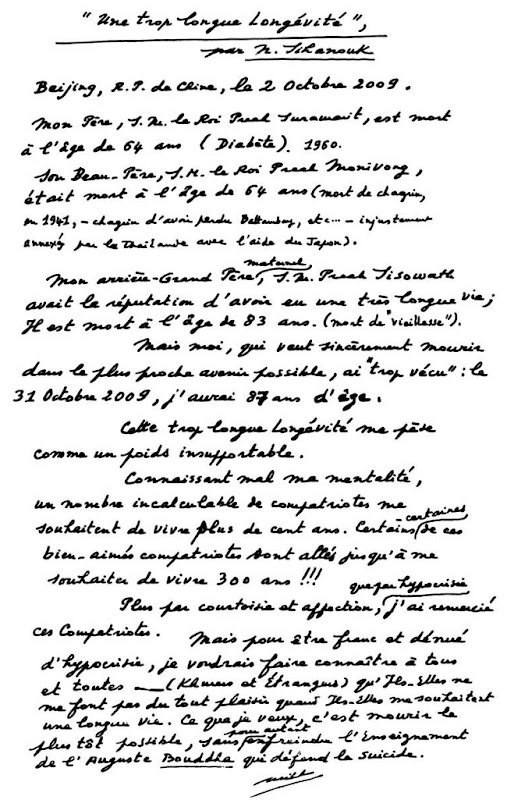 "Une trop longue longévité",
par N. Sihanouk
Beijing, R.P. de Chine, le 2 Octobre 2009.
Mon Père, S.M. le Roi Preah Suramarit, est mort
à l'âge de 64 ans (Diabète). 1960.
Son Beau-Père, S.M. le Roi Preah Monivong,
était mort à l'âge de 64 ans (mort de chagrin,
en 1941, - chagrin d'avoir perdu Battambang, etc... - injustement
annexés par la Thaïlande avec l'aide du Japon).
Mon arrière-Grand Père maternel, S.M. Preah Sisowath
avait la réputation d'avoir eu une très longue vie;
Il est mort à l'âge de 83 ans. (mort de "vieillesse").
Mais moi, qui veut sincèrement mourir
dans le plus proche avenir possible, ai "trop vécu" : le
31 Octobre 2009, j'aurai 87 ans d'âge.
Cette trop longue longévité me pèse
comme un poids insupportable.
Connaissant mal ma mentalité,
un nombre incalculable de compatriotes me
souhaitent de vivre plus de cent ans. Certains-certaines de ces
bien-aimés compatriotes sont allés jusqu'à me
souhaiter de vivre 300 ans !!!
Plus par courtoisie et affection, que par hypocrisie j'ai remercié
ces Compatriotes. Mais pour être franc et dénué
d'hypocrisie, je voudrais faire connaître à tous
et toutes — (Khmers et Étrangers) qu'Ils-Elles ne
me font pas du tout plaisir quand Ils-Elles me souhaitent
une longue vie. Ce que je veux, c'est mourir le
plus tôt possible, sans pour autant enfreindre l'Enseignement
de l'Auguste Bouddha qui défend le Suicide.